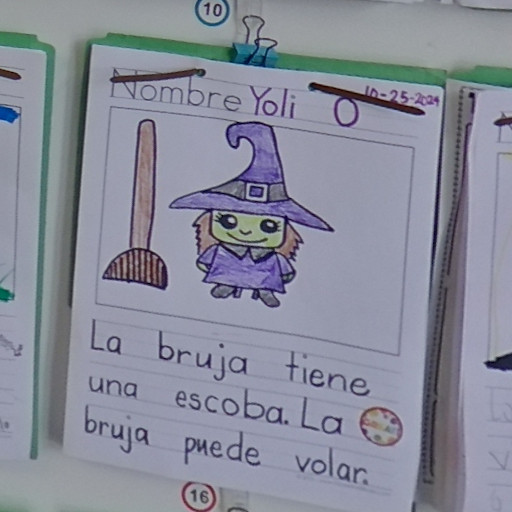 10
Nombre Yoli O 10-25-2024
La bruja tiene
una escoba. La
bruja puede volar.
16